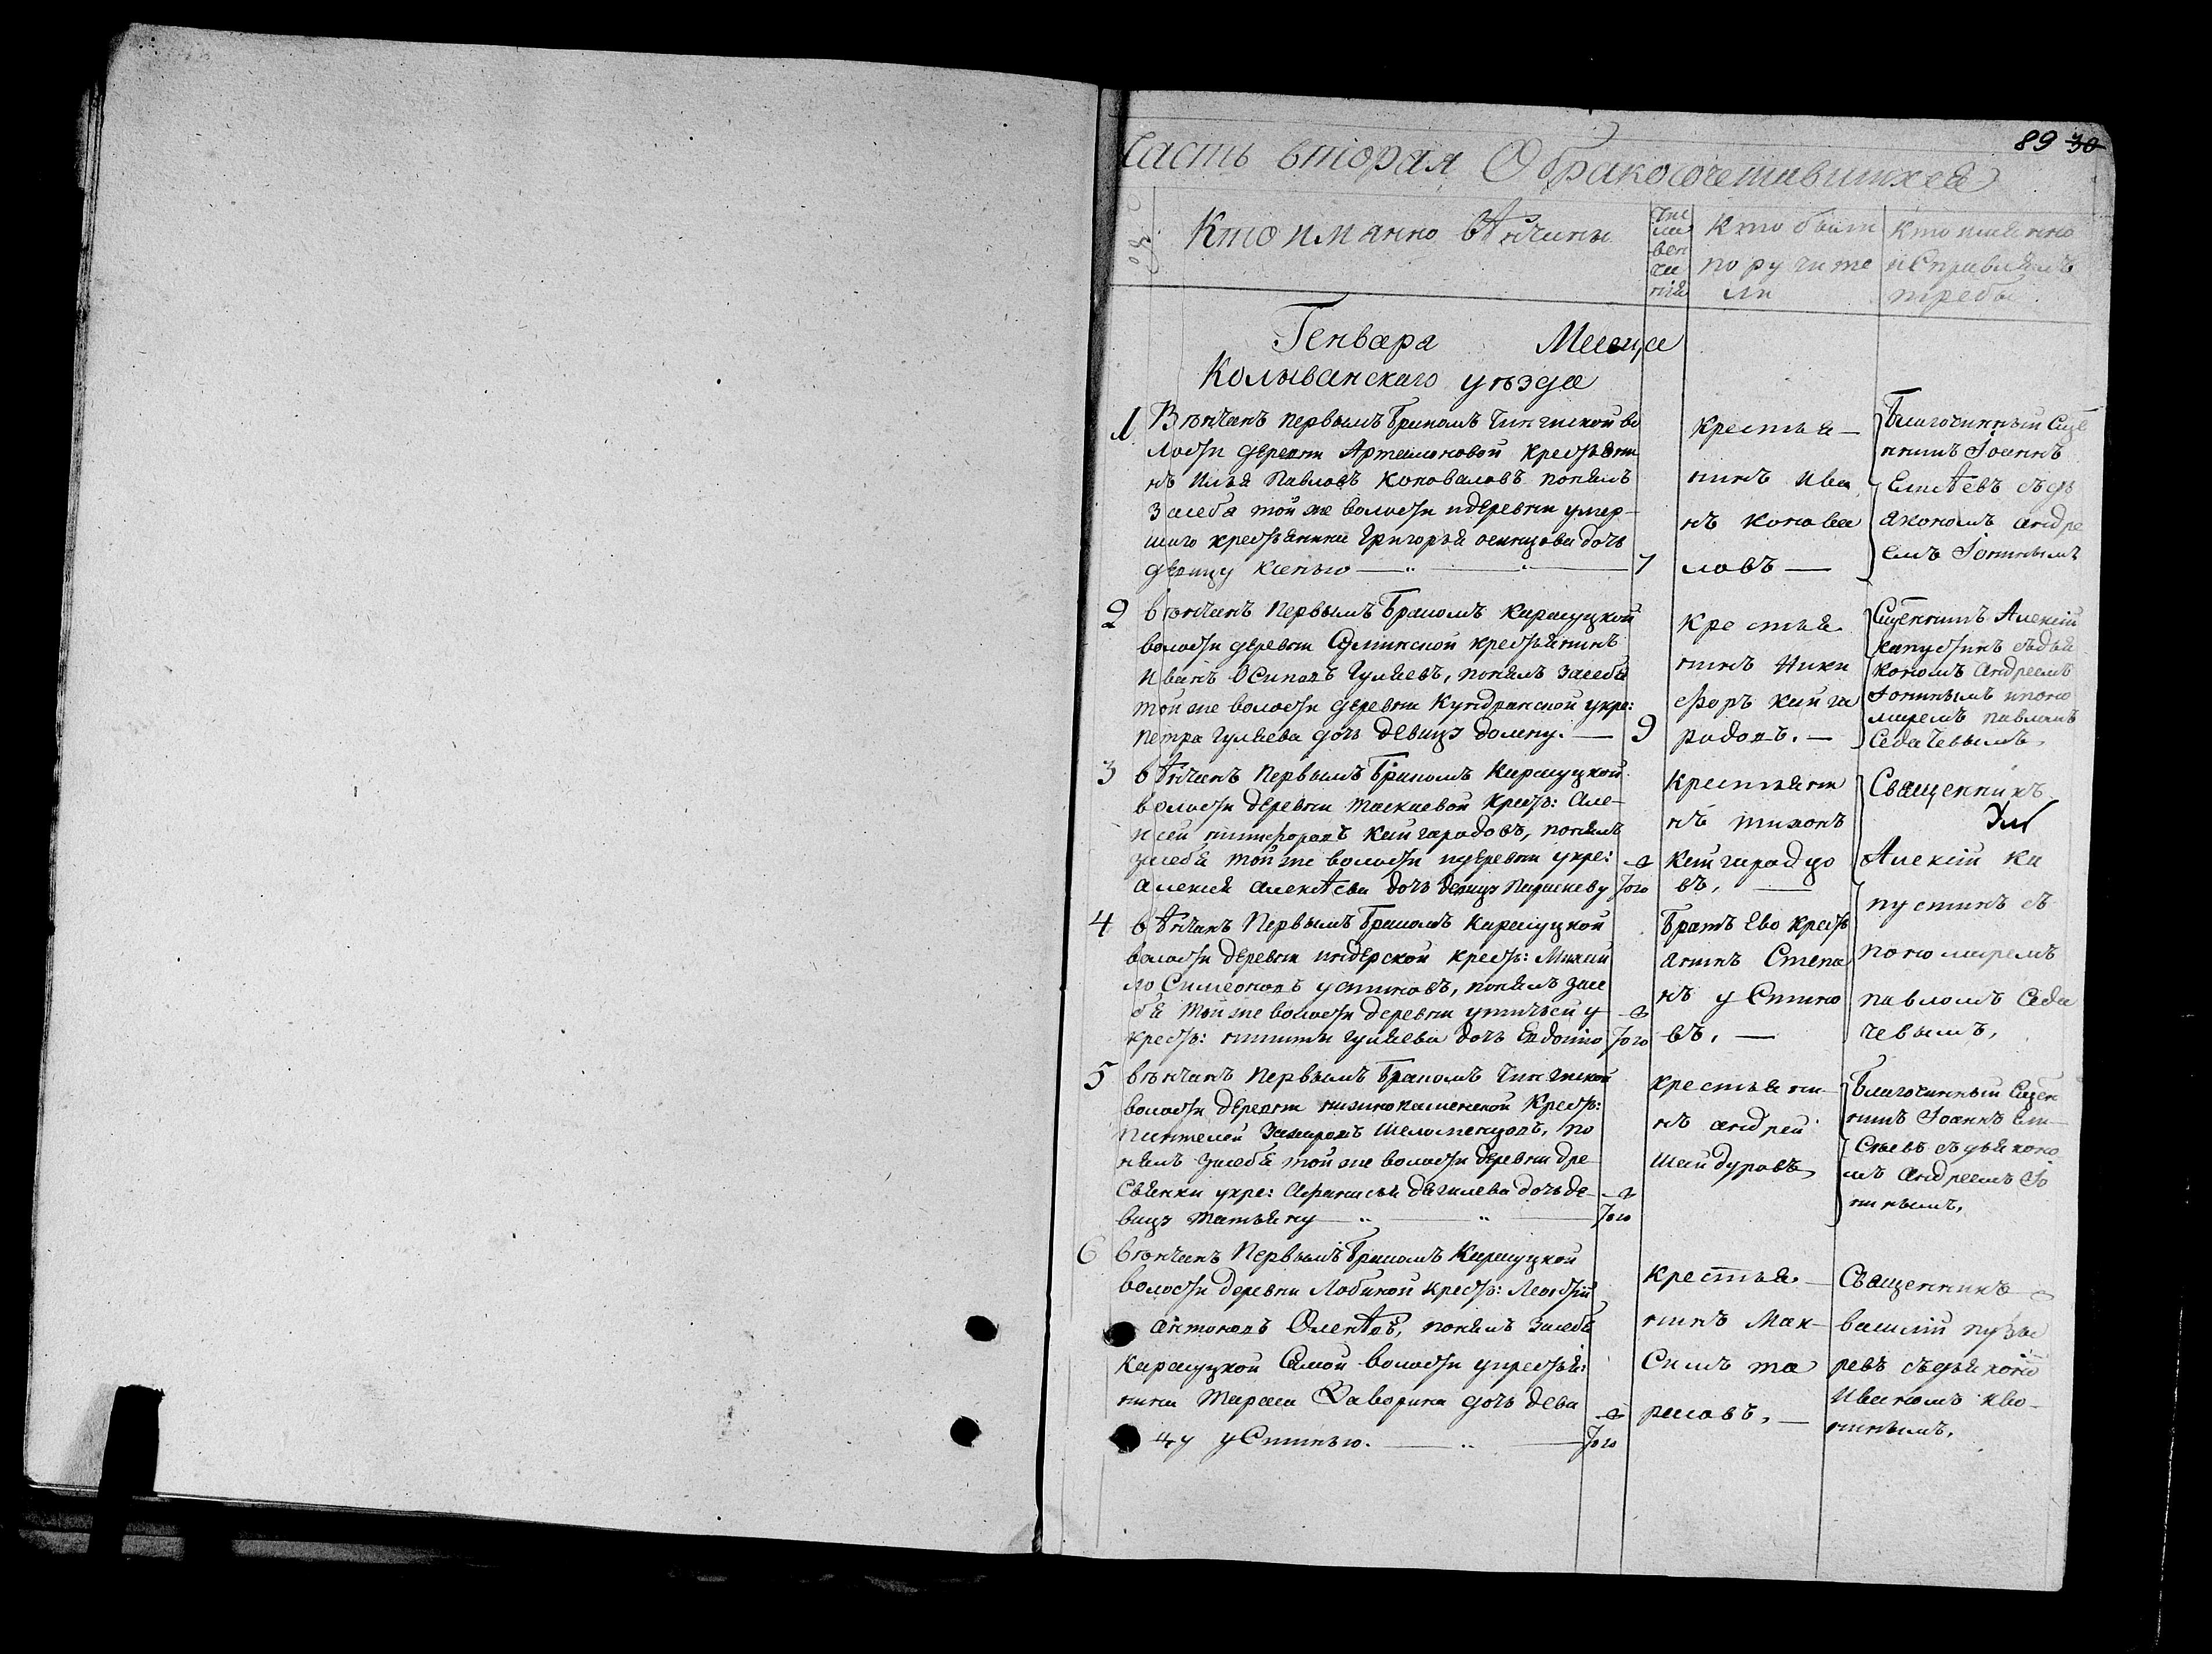 89 30
Часть вторая О бракосочетавшихся
Кто имянно вѣнчаны
Число венчанія
Кто были поручители
Кто имянно исправлялъ требы
Генваря Месеца
Колыванскаго уѣзда
1 Вѣнчанъ первымъ бракомъ Чингиской во
лости деревни Артамоновой крестьяни
нъ Илья Павловъ Коновалов понялъ
за себя той же волости и деревни умер-
шаго крестьянина Григорья дочь
девицу Ксенью — 7
крестья-
нинъ Ива
нъ Конова
ловъ —
Благочинный Сще
нникъ Іоаннъ
Елисѣевъ съ дь
якономъ Андре
емъ Іонинымъ
2 вѣнчанъ первымъ бракомъ Карасуцкой
волости деревни крестьянинъ
Иванъ Осиповъ Гуляевъ, понялъ за себя
той же волости деревни Кундранской укре:
Петра Гуляева дочь девицу Домну. — 9
крестья
нинъ Ники
форъ Кайга
родовъ. —
Сщенникъ Алексій
Капустинъ съ дья
кономъ Андреемъ
Іонинымъ и поно
маремъ Павломъ
Седачевымъ,
3 вѣнчанъ первымъ бракомъ Карасуцкой
волости деревни Таскаевой крест: Але-
ксей Никифоровъ Кайгародовъ, понялъ
за себя той же волости и деревни укре:
Алексея Алексѣева дочь девицу Парасковью того
крестьяни
нъ Тихонъ
Кайгародцо
въ, —
Священникъ
Алексій Ка
пустинъ съ
пономаремъ
Павломъ Седа
чевымъ,
4 вѣнчанъ первымъ бракомъ Карасуцкой
волости деревни Индерской крест: Михаи
ло Симеоновъ Устиновъ, понялъ за се
бя той же волости деревни у
крест: Никиты Гуляева дочь того
Братъ ево крест
янинъ Степа
нъ Устино
въ. —
5 вѣнчанъ первымъ бракомъ Чингиской
волости деревни нижнокаменской крест:
Пантелей Захаровъ Шеломенцовъ, по
нялъ за себя той же волости деревни Дре
свянки укре: Афанасья дочь де-
вицу Татьяну — того
крестьяни
нъ Андрей
Шайдуровъ
Благочинный Сщен
никъ Іоаннъ Ели-
сѣевъ съ дьяконо
мъ Андреемъ Іо
нинымъ,
6 вѣнчанъ первымъ бракомъ Карасуцкой
волости деревни Лобиной крест: Леонтій
Антоновъ понялъ за себя
Карасуцкой самой волости у крестья:
нина Тараса Заворина дочь деви
цу Устинью. — того
крестья-
нинъ Мак-
симъ Та
расовъ, —
Священникъ
Василій Пузы
ревъ съ дьякономъ
Иваномъ Иво-
нинымъ.